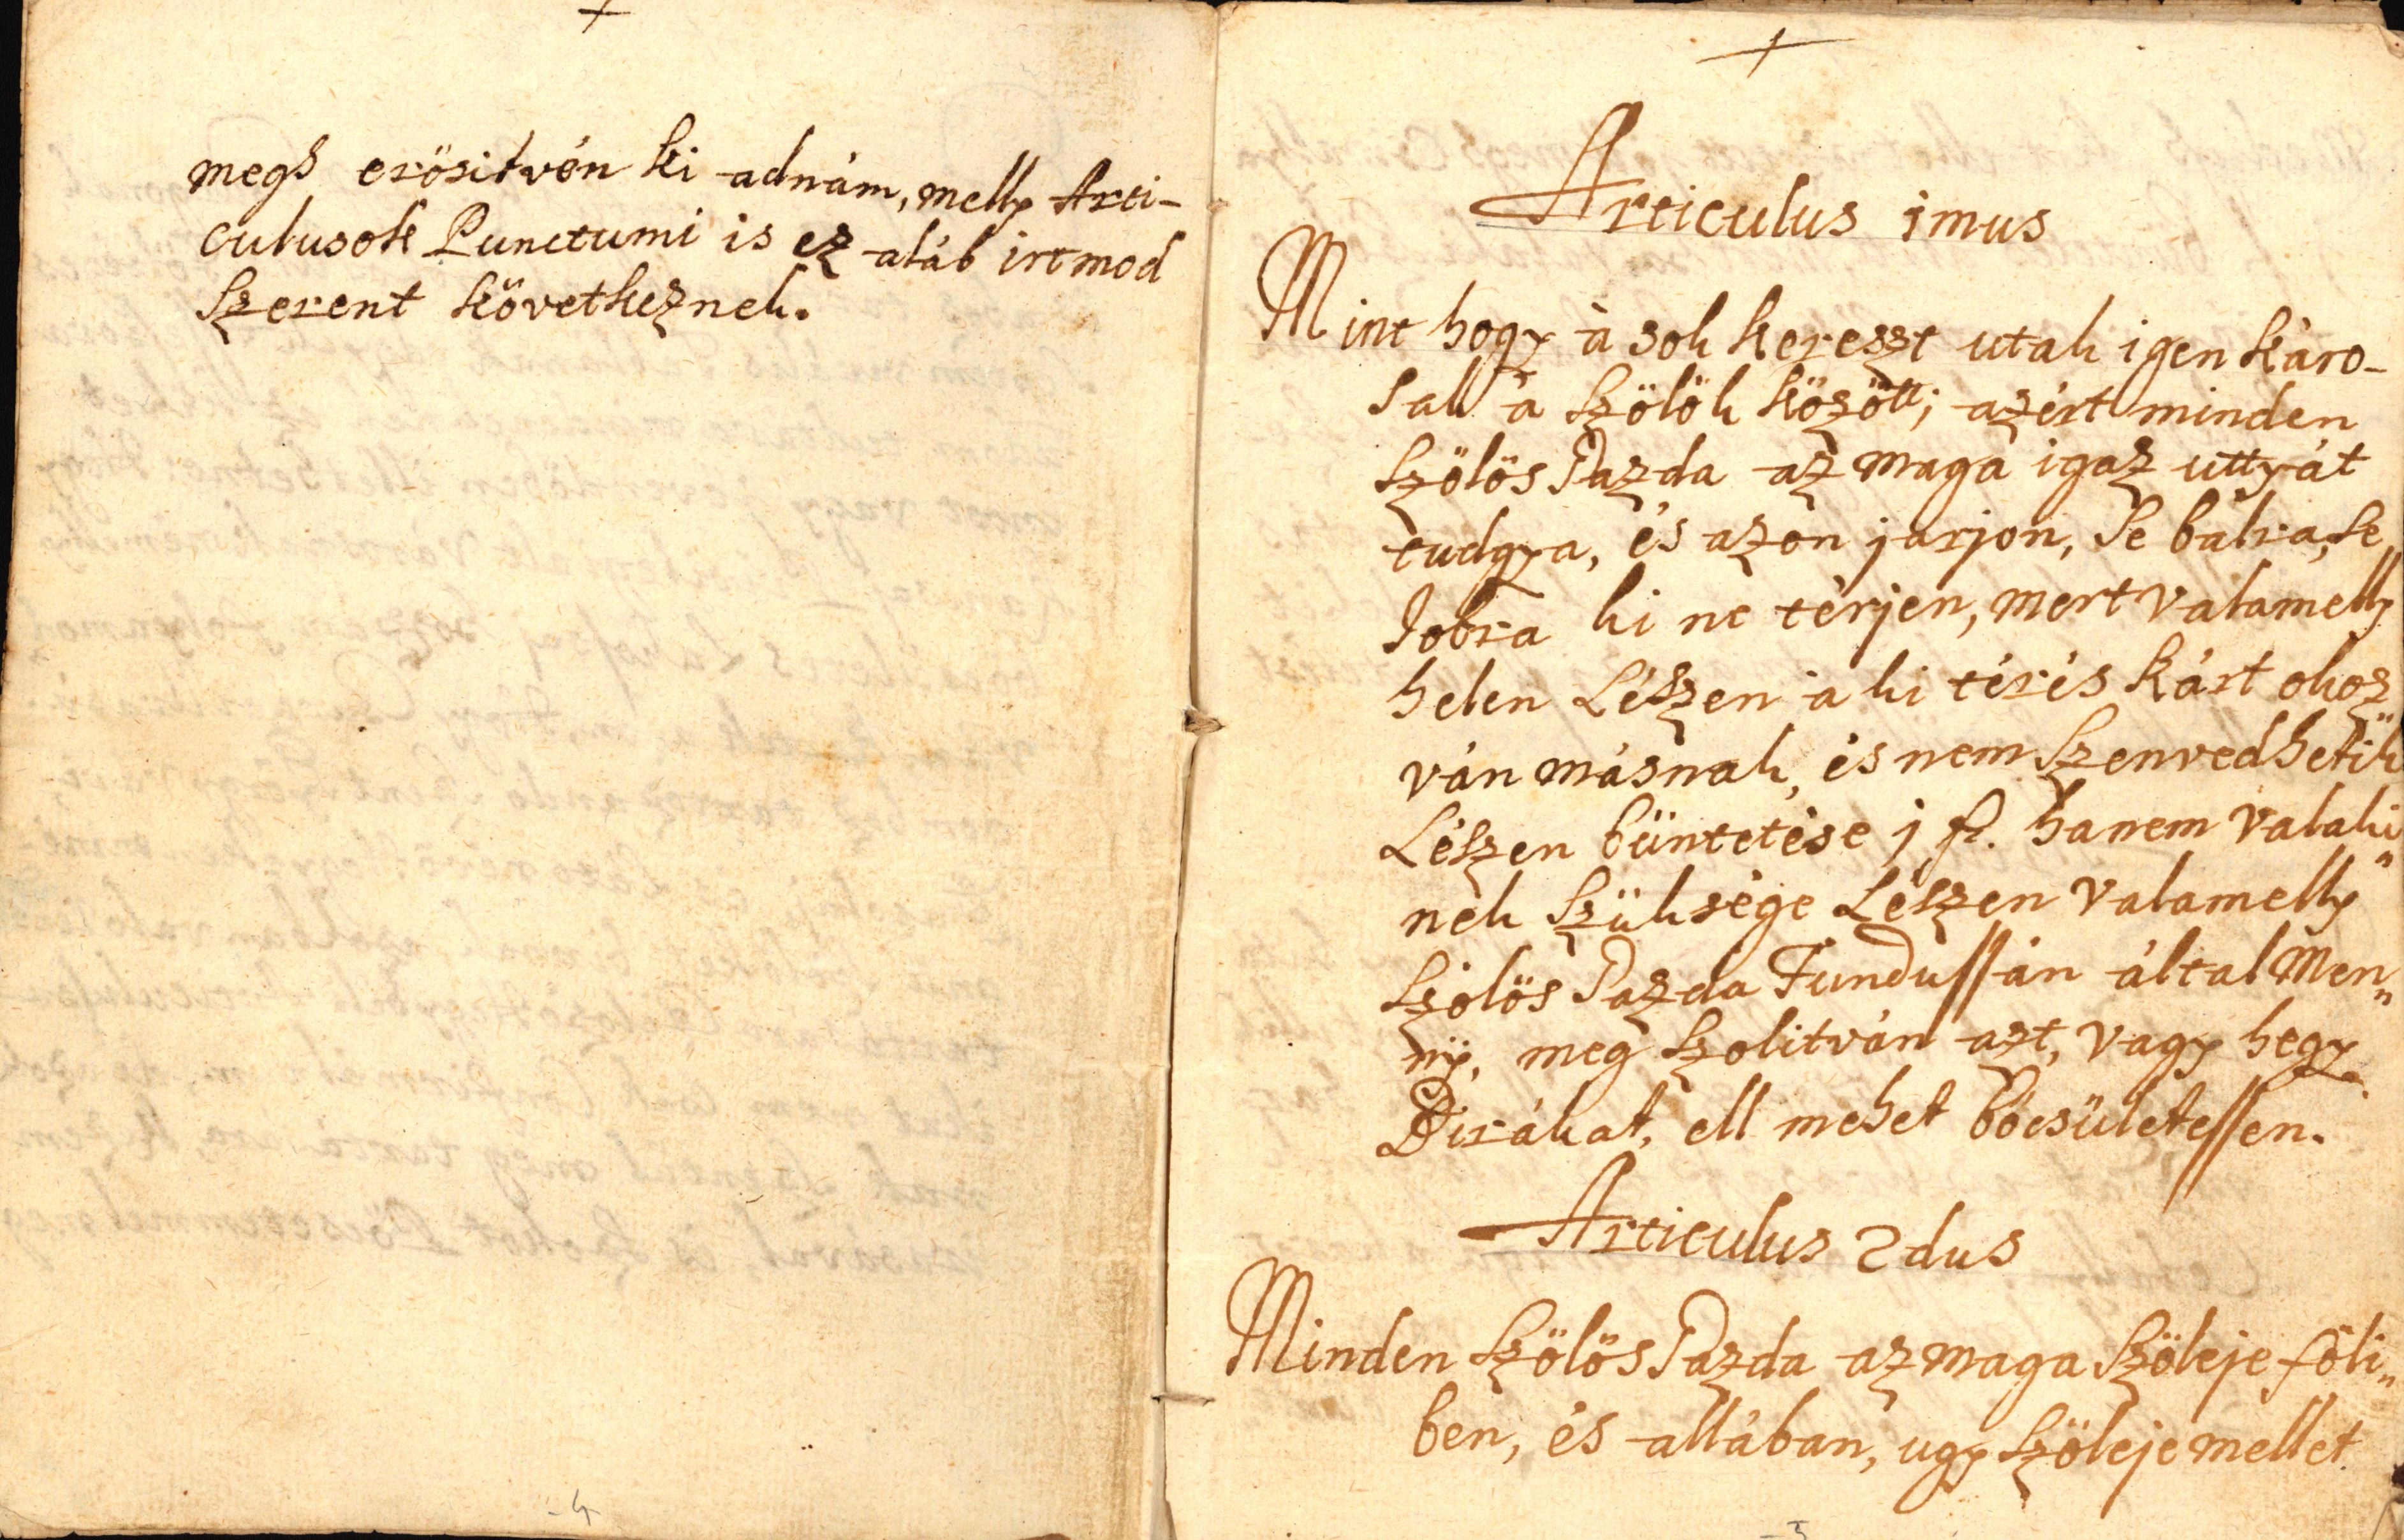 megh erösitvén ki adnám, melly Arti-
culusok Punctumi is ez aláb irt mod
szerent következnek.
4
Articulus 1mus
Mint hogy à sok kereszt utak igen káro-
sak à szölök között; azért minden
szölös Gazda az maga igaz uttyát
tudgya, és azon jarjon, se balra, se
Jobra ki ne térjen, mert valamelly
helen Lészen a ki térés kárt okoz„
ván másnak, és nem szenvedhetik
Lészen büntetése j fl. hanem valaki„
nek szüksége Lészen valamelly
szölös Gazda Fundussán által men„
ny, meg szolitván azt, vagy hegy
Birákat, ell mehet böcsületessen.
Articulus 2dus
Minden szölös Gazda az maga szöleje föli„
ben, és allában, ugy szöleje mellet
5